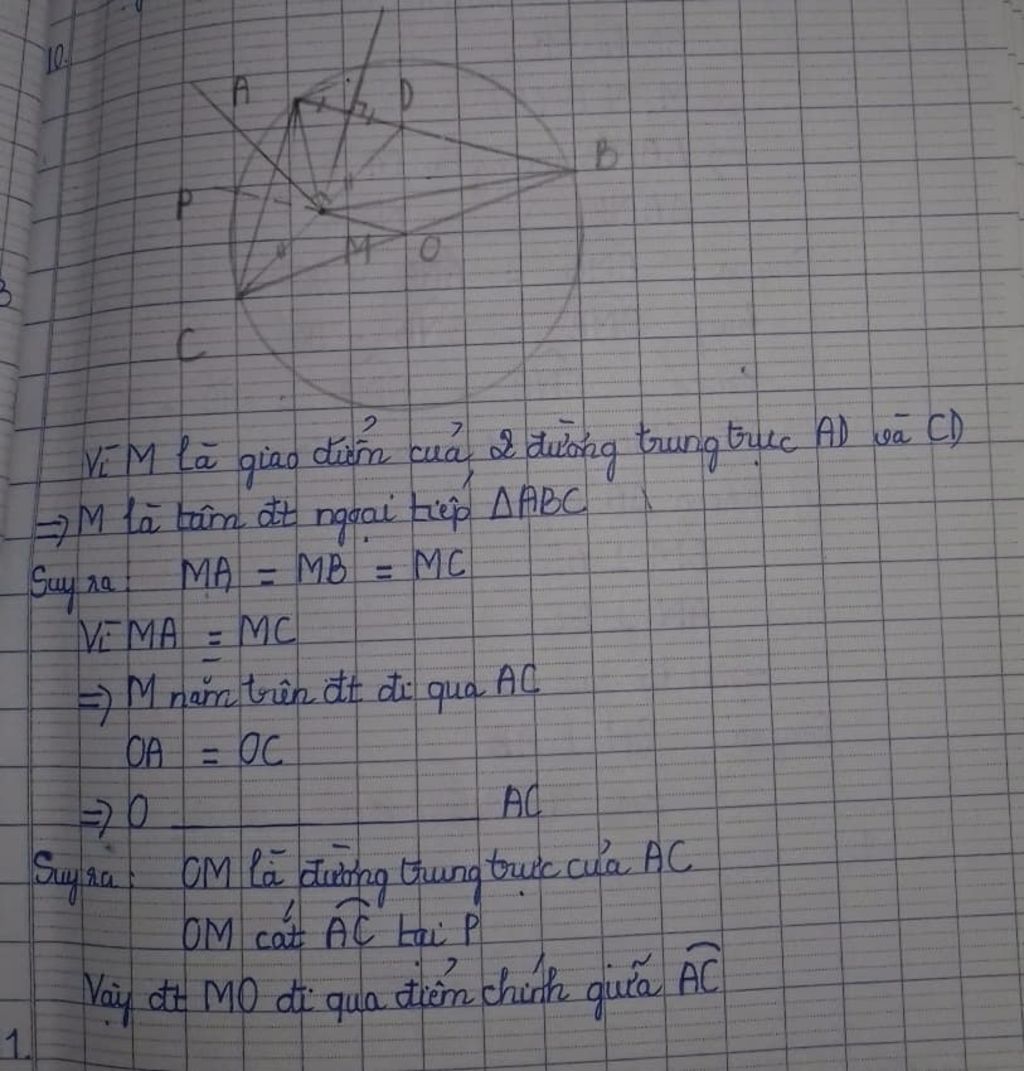 10.
A
D
B
P
M
O
C
3
Vì M là giao điểm của 2 đường trung trực AD và CD
=> M là tâm đt ngoại tiếp ΔABC
Suy ra: MA = MB = MC
Vì MA = MC
=> M nằm trên đt đi qua AC
OA = OC
=> O ________ AC
Suy ra: OM là đường trung trực của AC
OM cắt AC tại P
Vậy đt MO đi qua điểm chính giữa AC
1.